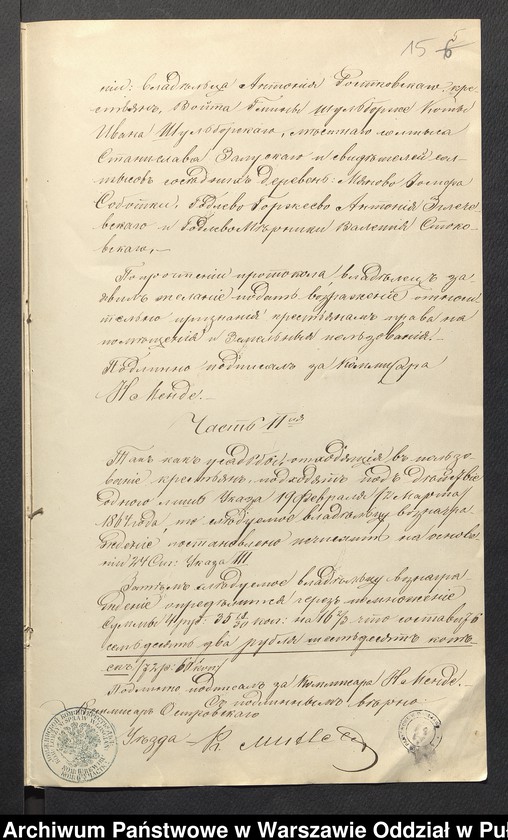 15 6
ніи: владѣльца Антонія Гостковскаго кре-
стьянъ, Войта Гмины Шульборже Коты
Ивана Шульборскаго, мѣстнаго солтыса
Станислава Залускаго и свидѣтелей сол-
тысовъ сосѣднихъ деревень: Мяново
Соботки, Годлево Горжеево Антонія
вскаго и Годлево Мѣрники Валентія Стоко-
вскаго.—
По прочтеніи протокола владѣлецъ за-
явилъ желаніе подать возраженіе относи-
тельно признанія крестьянамъ права на
помѣщенія и земельныя пользованія.—
Подлинно подписалъ за Коммисара
Н Менде.—
Часть IIая
Такъ какъ усадьбы отходящія въ пользо-
ваніе крестьянъ подходятъ подъ дѣйствіе
одного лишь Указа 19 Февраля /2 Марта/
1864 года, то слѣдуемое владѣльцу вознагра-
жденіе постановлено исчислить на основа-
ніи 24 Ст: Указа III.
Затѣмъ слѣдуемое владѣльцу вознагра-
жденіе опредѣлится черезъ помноженіе
суммы 4 руб: коп: на 16⅔ что составитъ
семьдесятъ два рубля шестьдесятъ копѣ-
екъ /72 р: 60 коп/
Подлинно подписалъ за Коммисара Н Менде.—
Съ подлиннымъ вѣрно
Коммисаръ Островскаго
Уѣзда
Archiwum Państwowe w Warszawie Oddział w Pu